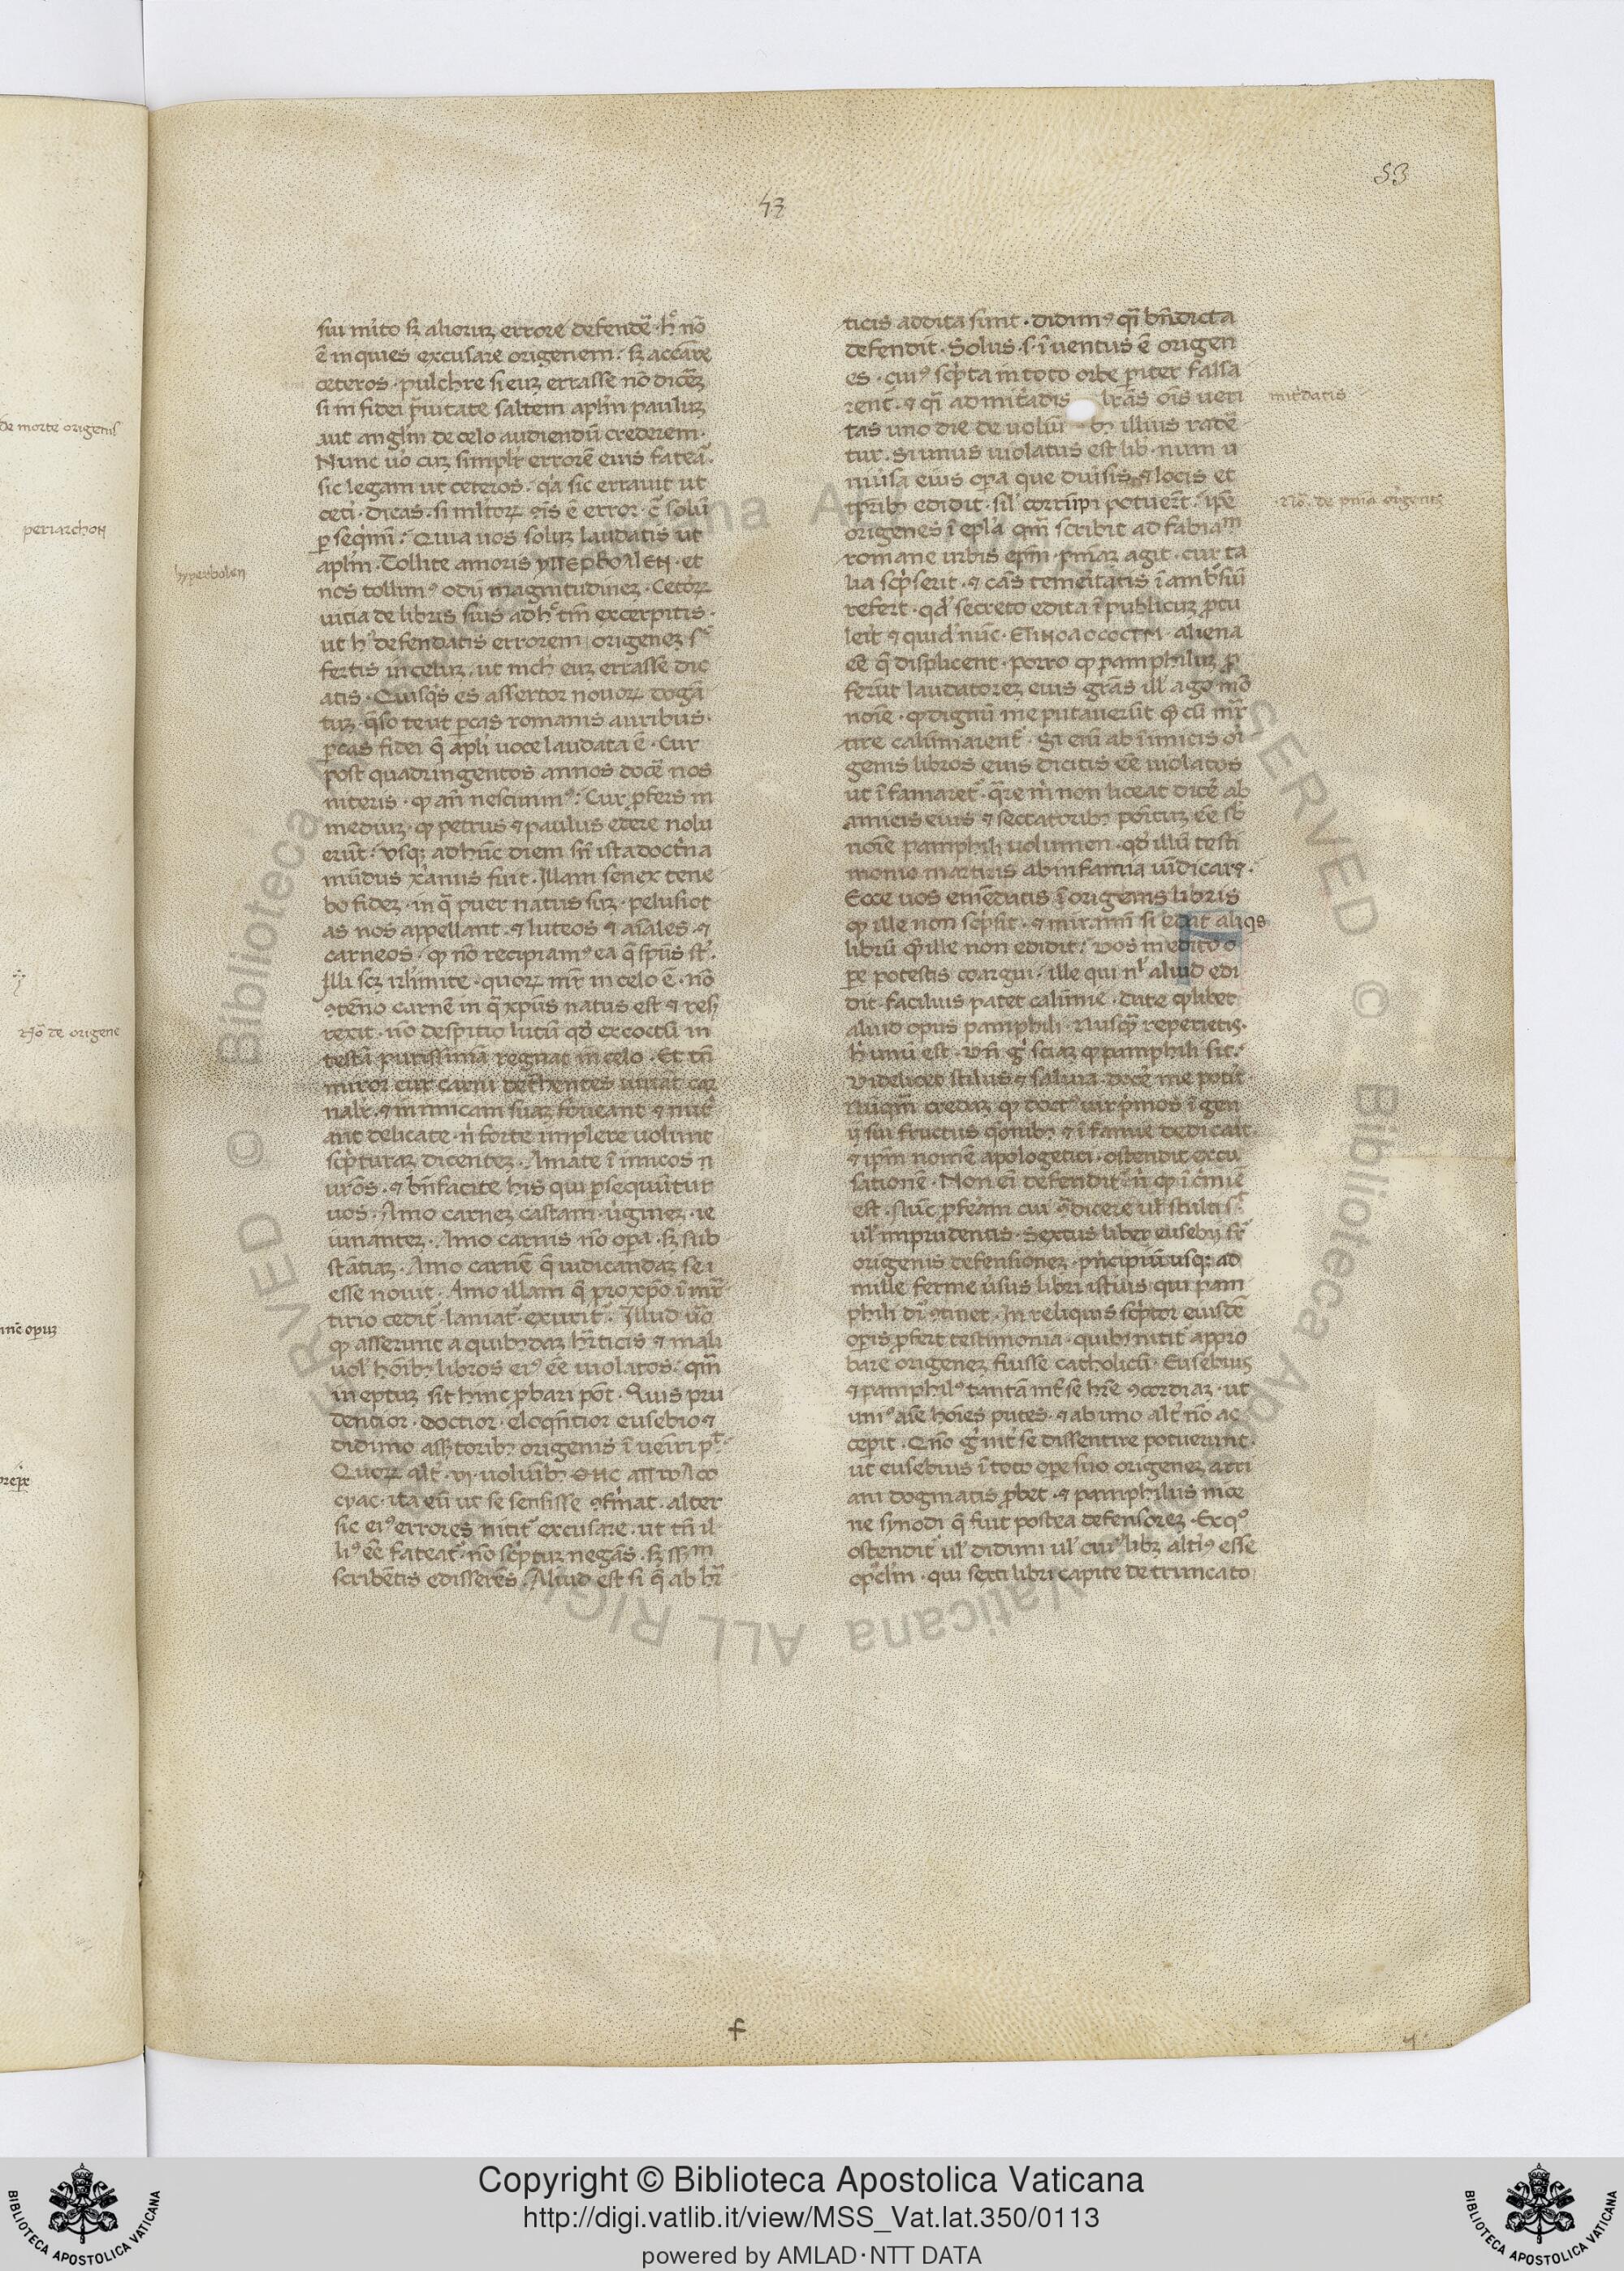 53
43
sui mĩto sꝫ alioruꝫ errore defendẽ · h̊ nõ
ẽ inquies excusare origenem · sꝫ accãre
ceteros · pulchre si euꝫ errasse nõ dicẽꝫ
si in fidei p̃uitate saltem aplm̃ pauluꝫ
aut anglm̃ de celo audiendũ crederem ·
Nunc ũo cuꝫ simplr̃ errorẽ eius fateã ·
sic legam ut ceteros · q̃a sic errauit ut
cet̃i · dicas · si ml̃toꝝ ꝯis ẽ error · c̃ solũ
ꝑseq̃mĩ · Quia uos soluꝫ laudatis ut
aplm̃ · Tollite amoris ΥΠΕΡΒΟΛΕΝ · et
nos tollimꝰ odij magnitudineꝫ · Cetoꝝ
uitia de libris suis ad h̊ tm̃ excerpitis ·
ut hꝰ defendatis errorem origeneꝫ s̃
fertis in celuꝫ · ut nich̃ euꝫ errasse dic
atis · Quisq̃s es assertor nouoꝝ dogã
tuꝫ · q̃so te ut ꝑcas romanis auribus ·
ꝑcas fidei q̃ apl̃i uoce laudata ẽ · Cur
post quadringentos annos docẽ nos
niteris · ꝙ añ nesciuimꝰ · Cur ꝓfers in
mediuꝫ · ꝙ petrus ⁊ paulus edere nolu
erũt · Vsqꝫ ad hũc diem sñ ista doctĩna
mũdus xp̃ianus fuit · Illam senex tene
bo fideꝫ · in q̃ puer natus suꝫ · pelusiot
as nos appellant · ⁊ luteos ⁊ aĩales · ⁊
carneos · ꝙ nõ recipiamꝰ ea q̃ sp̃us st̃ ·
Illi scꝫ irl̃imite · quoꝝ mr̃ in celo ẽ · nõ
ꝯtẽno carnẽ in q̃ xp̃us natus est ⁊ resꝫ
rexit · nõ despitio lutũ qd̃ excoctũ in
testã purissimã regnat in celo · Et tñ
miror cur carni det̃hentes uiuãt car
nalr̃ · ⁊ inimicam suaꝫ foueant ⁊ nut̃
ant delicate · ñ forte implere uolunt
scp̃turaꝫ dicenteꝫ · Amate ĩimicos ñ
urõs · ⁊ bñfacite his qui ꝑsequũtur
uos · Amo carneꝫ castam · ũgineꝫ · ie
iunanteꝫ · Amo carnis nõ oꝑa · sꝫ sub
stãtiaꝫ · Amo carnẽ q̃ iudicandaꝫ se i
esse nouit · Amo illam q̃ pro xp̃o ĩ mr̃
tirio cedit̃ · laniat̃ · exurit̃ · Illud ũo
ꝙ asserunt a quibꝰdaꝫ hr̃ticis ⁊ mali
uol̃ hõibꝰ libros eiꝰ ẽe uiolatos · qm̃
ineptuꝫ sit hinc ꝓbari põt · Quis pru
dentior · doctior · eloqñtior eusebio ⁊
didimo assꝫtoribꝰ origenis ĩueĩri pt̃ ·
Quoꝝ alt̃ · vj · uoluĩbꝰ ΘΗC ΑΠΠΟΛΟ
CΥΑC · ita eũ ut se sensisse ꝯfir̃mat · alter
sic eiꝰ errores nitit̃ excusare · ut tñ il
liꝰ ẽe fateat̃ · nõ scp̃tuꝫ negãs · sꝫ ss̃m
scribẽtis edisserẽs · Aliud est si q̃ ab hr̃
ticis addita sunt · didimꝰ q̃i bñdicta
defendit · Solus · s · ĩuentus ẽ origen
es · cuiꝰ scp̃ta in toto orbe ꝑiter falsa
rent̃ · ⁊ q̃i ad mit̃datis lr̃as oĩs ueri
tas uno die de uolũ bꝰ illius radẽ
tur · Si unus uiolatus est lib̃ · num ũ
niũsa eius oꝑa que diũsis ⁊ locis et
tꝑribꝰ edidit · sil̃ corrũpi potuer̃t · ip̃e
origenes ĩ epl̃a qm̃ scribit ad fabiam
romane urbis epm̃ · pñiaꝫ agit · cur ta
lia scp̃serit · ⁊ cãs temeĩtatis ĩ amb̃siũ
refert · qd̃ secreto edita ĩ publicuꝫ ꝓtu
leĩt ⁊ quid̃ nũc · aliena
ẽe q̃ displicent · Porro ꝙ pamphiluꝫ ꝓ
ferũt laudatoreꝫ eius grãs ill̃ ago mõ
noĩe · ꝙ dignũ me putauerũt q̃ cũ mr̃
tire calũniarent̃ · Si eni ab ĩimicis ori
genis libros eius dicitis ẽe uiolatos
ut ĩfamaret̃ · q̃re m̃ non liceat dicẽ ab
amicis eius ⁊ sectatoribꝰ põituꝫ ẽe sb̃
noĩe pamphili uolumen · qd̃ illũ testi
monio martiris ab infamia uĩdicarꝫ ·
Ecce uos emẽdatis ĩ origenis libris
ꝙ ille non scp̃sit · ⁊ mirãmĩ si edat aliqs
librũ q̃ ille non edidit · Vos in edito o
ꝑe potestis coargui · ille qui nl̃ aliud edi
dit · facilius patet calũnie · date qlibet
aliud opus pamphili · nusq̃ reperietis ·
h̃ unũ est · vñ g̃ sciaꝫ ꝙ pamphili sit ·
videlicet stilus ⁊ saliua docẽ me potit̃ ·
Nũqm̃ credaꝫ ꝙ doctꝰ uir p̃mos ĩgen
ij sui fructus q̃onibꝰ ⁊ ĩfamie dedicãit ·
⁊ ip̃m nomẽ apologetici · ostendit excu
sationẽ · Non eĩ defendit̃ ñ ꝙ ĩ c̃mĩe
est · Nũc ꝓferam cui ꝯ̃dicere ul̃ stulti s̃
ul̃ imprudentis · Sextus liber eusebij sr̃
origenis defensioneꝫ · pñcipiũ usqꝫ ad
mille ferme ũsus libri istius qui pam
phili dr̃ ꝯtinet · In reliquis scp̃tor eiusdẽ
oꝑis ꝓfert testimonia · quibꝰ nitit̃ appro
bare origeneꝫ fuisse catholicũ · Eusebius
⁊ pamphilꝰ tantã int̃ se hr̃e ꝯcordiaꝫ · ut
uniꝰ aĩe hoĩes putes · ⁊ ab uno alt̃ nõ ac
cepit · Qñõ g̃ int̃ se dissentire potuerunt ·
ut eusebius ĩ toto oꝑe suo origeneꝫ arri
ani dogmatis ꝓbet · ⁊ pamphilus nice
ne synodi q̃ fuit postea defensoreꝫ · Ex qꝰ
ostendit̃ ul̃ didimi ul̃ cuiꝰlibꝫ alt̃iꝰ esse
opꝰcl̃m · qui sexti libri capite detruncato
hyperbolen
mit̃datis
Nõ · de pñia origenis
de morte origenis
periarchon
Nõ de origene
f
Copyright © Biblioteca Apostolica Vaticana
http://digi.vatlib.it/view/MSS_Vat.lat.350/0113
powered by AMLAD·NTT DATA
BIBLIOTECA APOSTOLICA VATICANA
BIBLIOTECA APOSTOLICA VATICANA